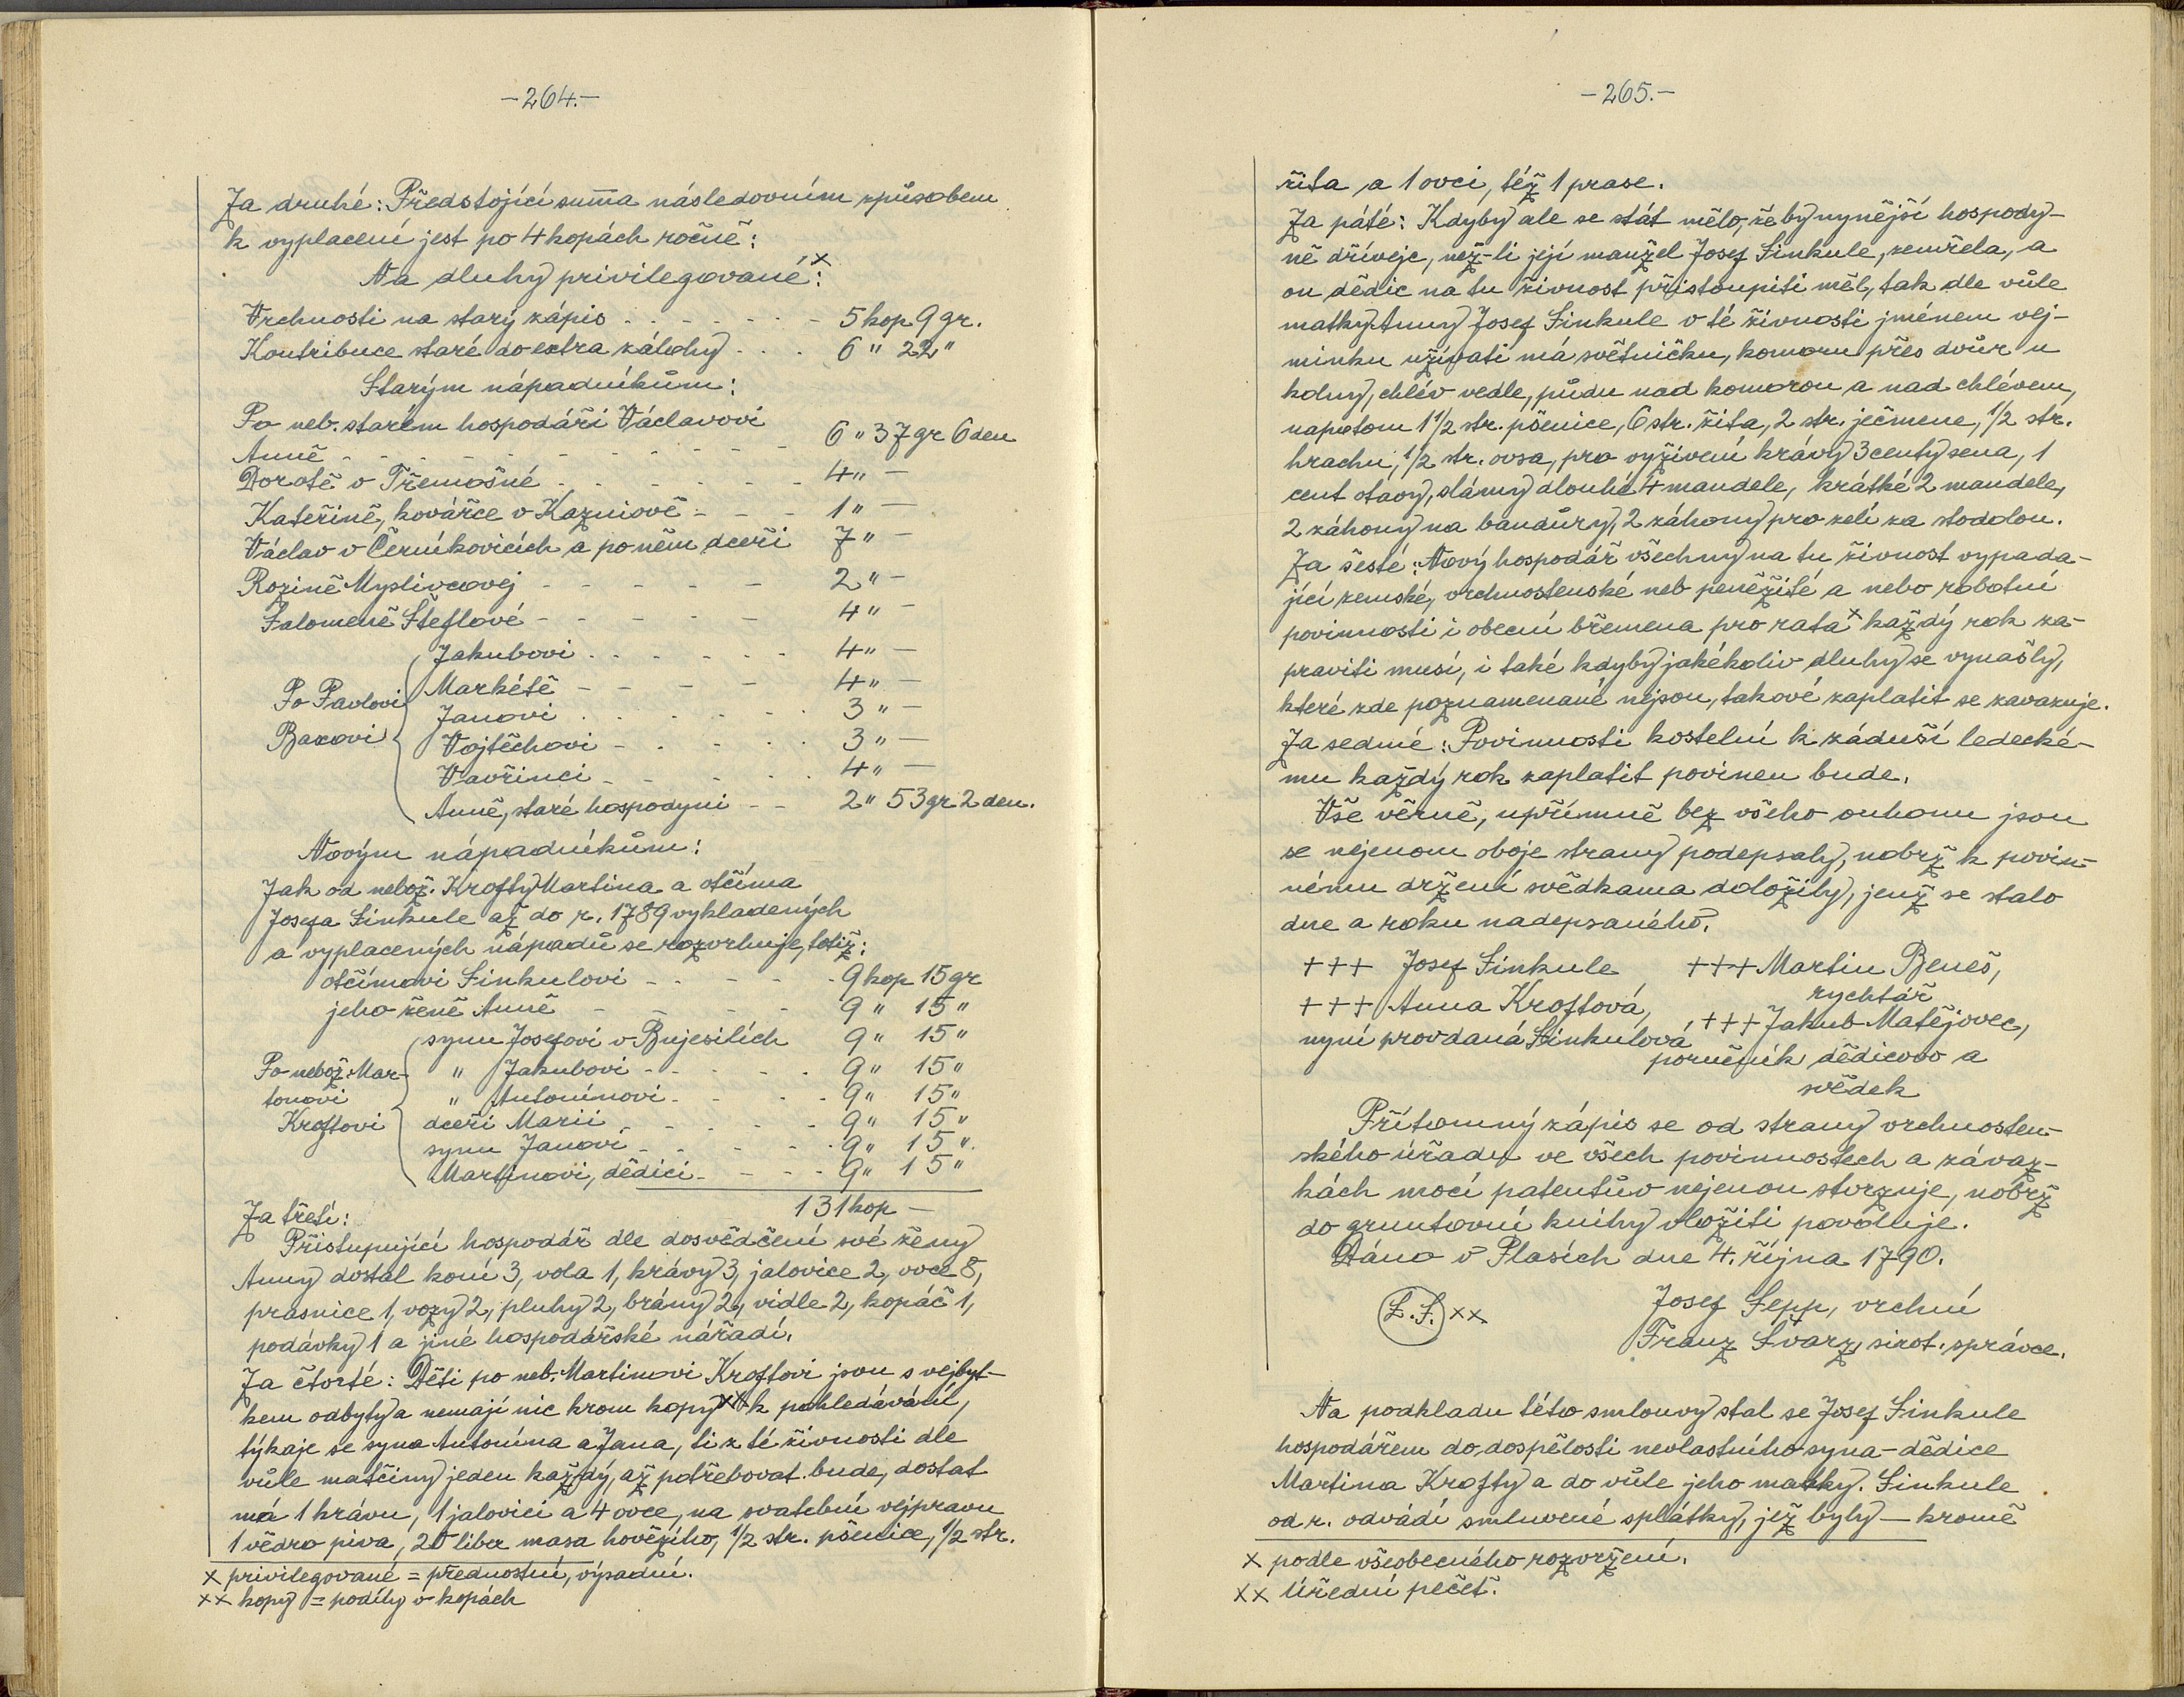 -264.-
Za druhé: Předstojící suma následovním způsobem
k vyplacení jest po 4 kopách ročně:
Na dluhy privilegované x:
Vrchnosti na starý zápis - - - - - - 5 kop 9 gr.
Kontribuce staré do extra zálohy . . . 6 " 22 "
Starým nápadníkům:
Po neb. starém hospodáři Václavovi
Anně - - - - - - - - - - 6 " 37 gr 6 den
Dorotě v Třemošné - - - - - - 4 " —
Kateřině, kovářce v Kazniově - - - 1 " —
Václav v Černíkovicích a po něm dceři 7 " —
Rozině Myslivcovej - - - - - 2 " —
Salomeně Šteflové - - - - - 4 " —
Jakubovi . . . . . . 4 " —
Po Pavlovi Markétě - - - - 4 " —
Janovi . . . . . . 3 " —
Baxovi Vojtěchovi - . . . . 3 " —
Vavřinci - - - . . 4 " —
Anně, staré hospodyni - - 2 " 53 gr 2 den.
Novým nápadníkům:
Jak od nebož. Krofty Martina a otčíma
Josefa Sinkule až do r. 1789 vykladených
a vyplacených nápadů se rozvrhuje, totiž:
otčímovi Sinkulovi - - - - - 9 kop 15 gr
jeho ženě Anně - - - - - 9 " 15 "
synu Josefovi v Bujesilích 9 " 15 "
Po nebož. Mar- " Jakubovi - - - - 9 " 15 "
tonovi " Antonínovi - - - - 9 " 15 "
Kroftovi dceři Marii - - - - - 9 " 15 "
synu Janovi - - - - - 9 " 15 "
Martinovi, dědici - - - - 9 " 15 "
131 kop —
Za třetí:
Přistupující hospodář dle dosvědčení své ženy
Anny dostal koní 3, vola 1, krávy 3, jalovice 2, ovce 8,
prasnice 1, vozy 2, pluhy 2, brány 2, vidle 2, kopáč 1,
podávky 1 a jiné hospodářské nářadí.
Za čtvrté: Děti po neb. Martinovi Kroftovi jsou s vejbyt-
kem odbyty a nemají nic krom kopy xx k pohledávání,
týkaje se syna Antonína a Jana, ti z té živnosti dle
vůle matčiny jeden každý, až potřebovat bude, dostat
má 1 krávu, 1 jalovici a 4 ovce, na svatební vejpravu
1 vědro piva, 20 liber masa hovězího, 1/2 str. pšenice, 1/2 str.
x privilegované = přednostní, výsadní.
xx kopy = podíly v kopách
-265.-
žita a 1 ovci, též 1 prase.
Za páté: Kdyby ale se stát mělo, že by nynější hospody-
ně dříveje, než-li její manžel Josef Sinkule, zemřela, a
on dědic na tu živnost přistoupiti měl, tak dle vůle
matky Anny Josef Sinkule v té živnosti jménem vej-
minku užívati má světničku, komoru přes dvůr u
kolny, chlév vedle, půdu nad komorou a nad chlévem,
napotom 1 1/2 str. pšenice, 6 str. žita, 2 str. ječmene, 1/2 str.
hrachu, 1/2 str. ovsa, pro vyživení krávy 3 centy sena, 1
cent otavy, slámy dlouhé 4 mandele, krátké 2 mandele,
2 záhony na bandůry, 2 záhony pro zelí za stodolou.
Za šesté: Nový hospodář všechny na tu živnost vypada-
jící zemské, vrchnostenské neb peněžité a nebo robotní
povinnosti i obecní břemena pro rata x každý rok za-
praviti musí, i také kdyby jakékoliv dluhy se vynašly,
které zde poznamenané nejsou, takové zaplatit se zavazuje.
Za sedmé: Povinnosti kostelní k záduší ledecké-
mu každý rok zaplatit povinen bude.
Vše věrně, upřímně bez všeho ouhonu jsou
se nejenom oboje strany podepsaly, nobrž k povin-
nému držení svědkama doložily, jenž se stalo
dne a roku nadepsaného.
+++ Josef Sinkule +++ Martin Beneš,
rychtář
+++ Anna Kroftová, +++ Jakub Matějovec,
nyní provdaná Sinkulová poručník dědicovo a
svědek
Přítomný zápis se od strany vrchnosten-
ského úřadu ve všech povinnostech a závaz-
kách mocí patentův nejenou stvrzuje, nobrž
do gruntovní knihy vložiti povoluje.
Dáno v Plasích dne 4. října 1790.
L.S. xx Josef Sepp, vrchní
Franz Švarz, sirot. správce.
Na podkladu této smlouvy stal se Josef Sinkule
hospodářem do dospělosti nevlastního syna - dědice
Martina Krofty a do vůle jeho matky. Sinkule
od r. odvádí smluvené splátky, jež byly — kromě
x podle všeobecného rozvržení.
xx Úřední pečeť.